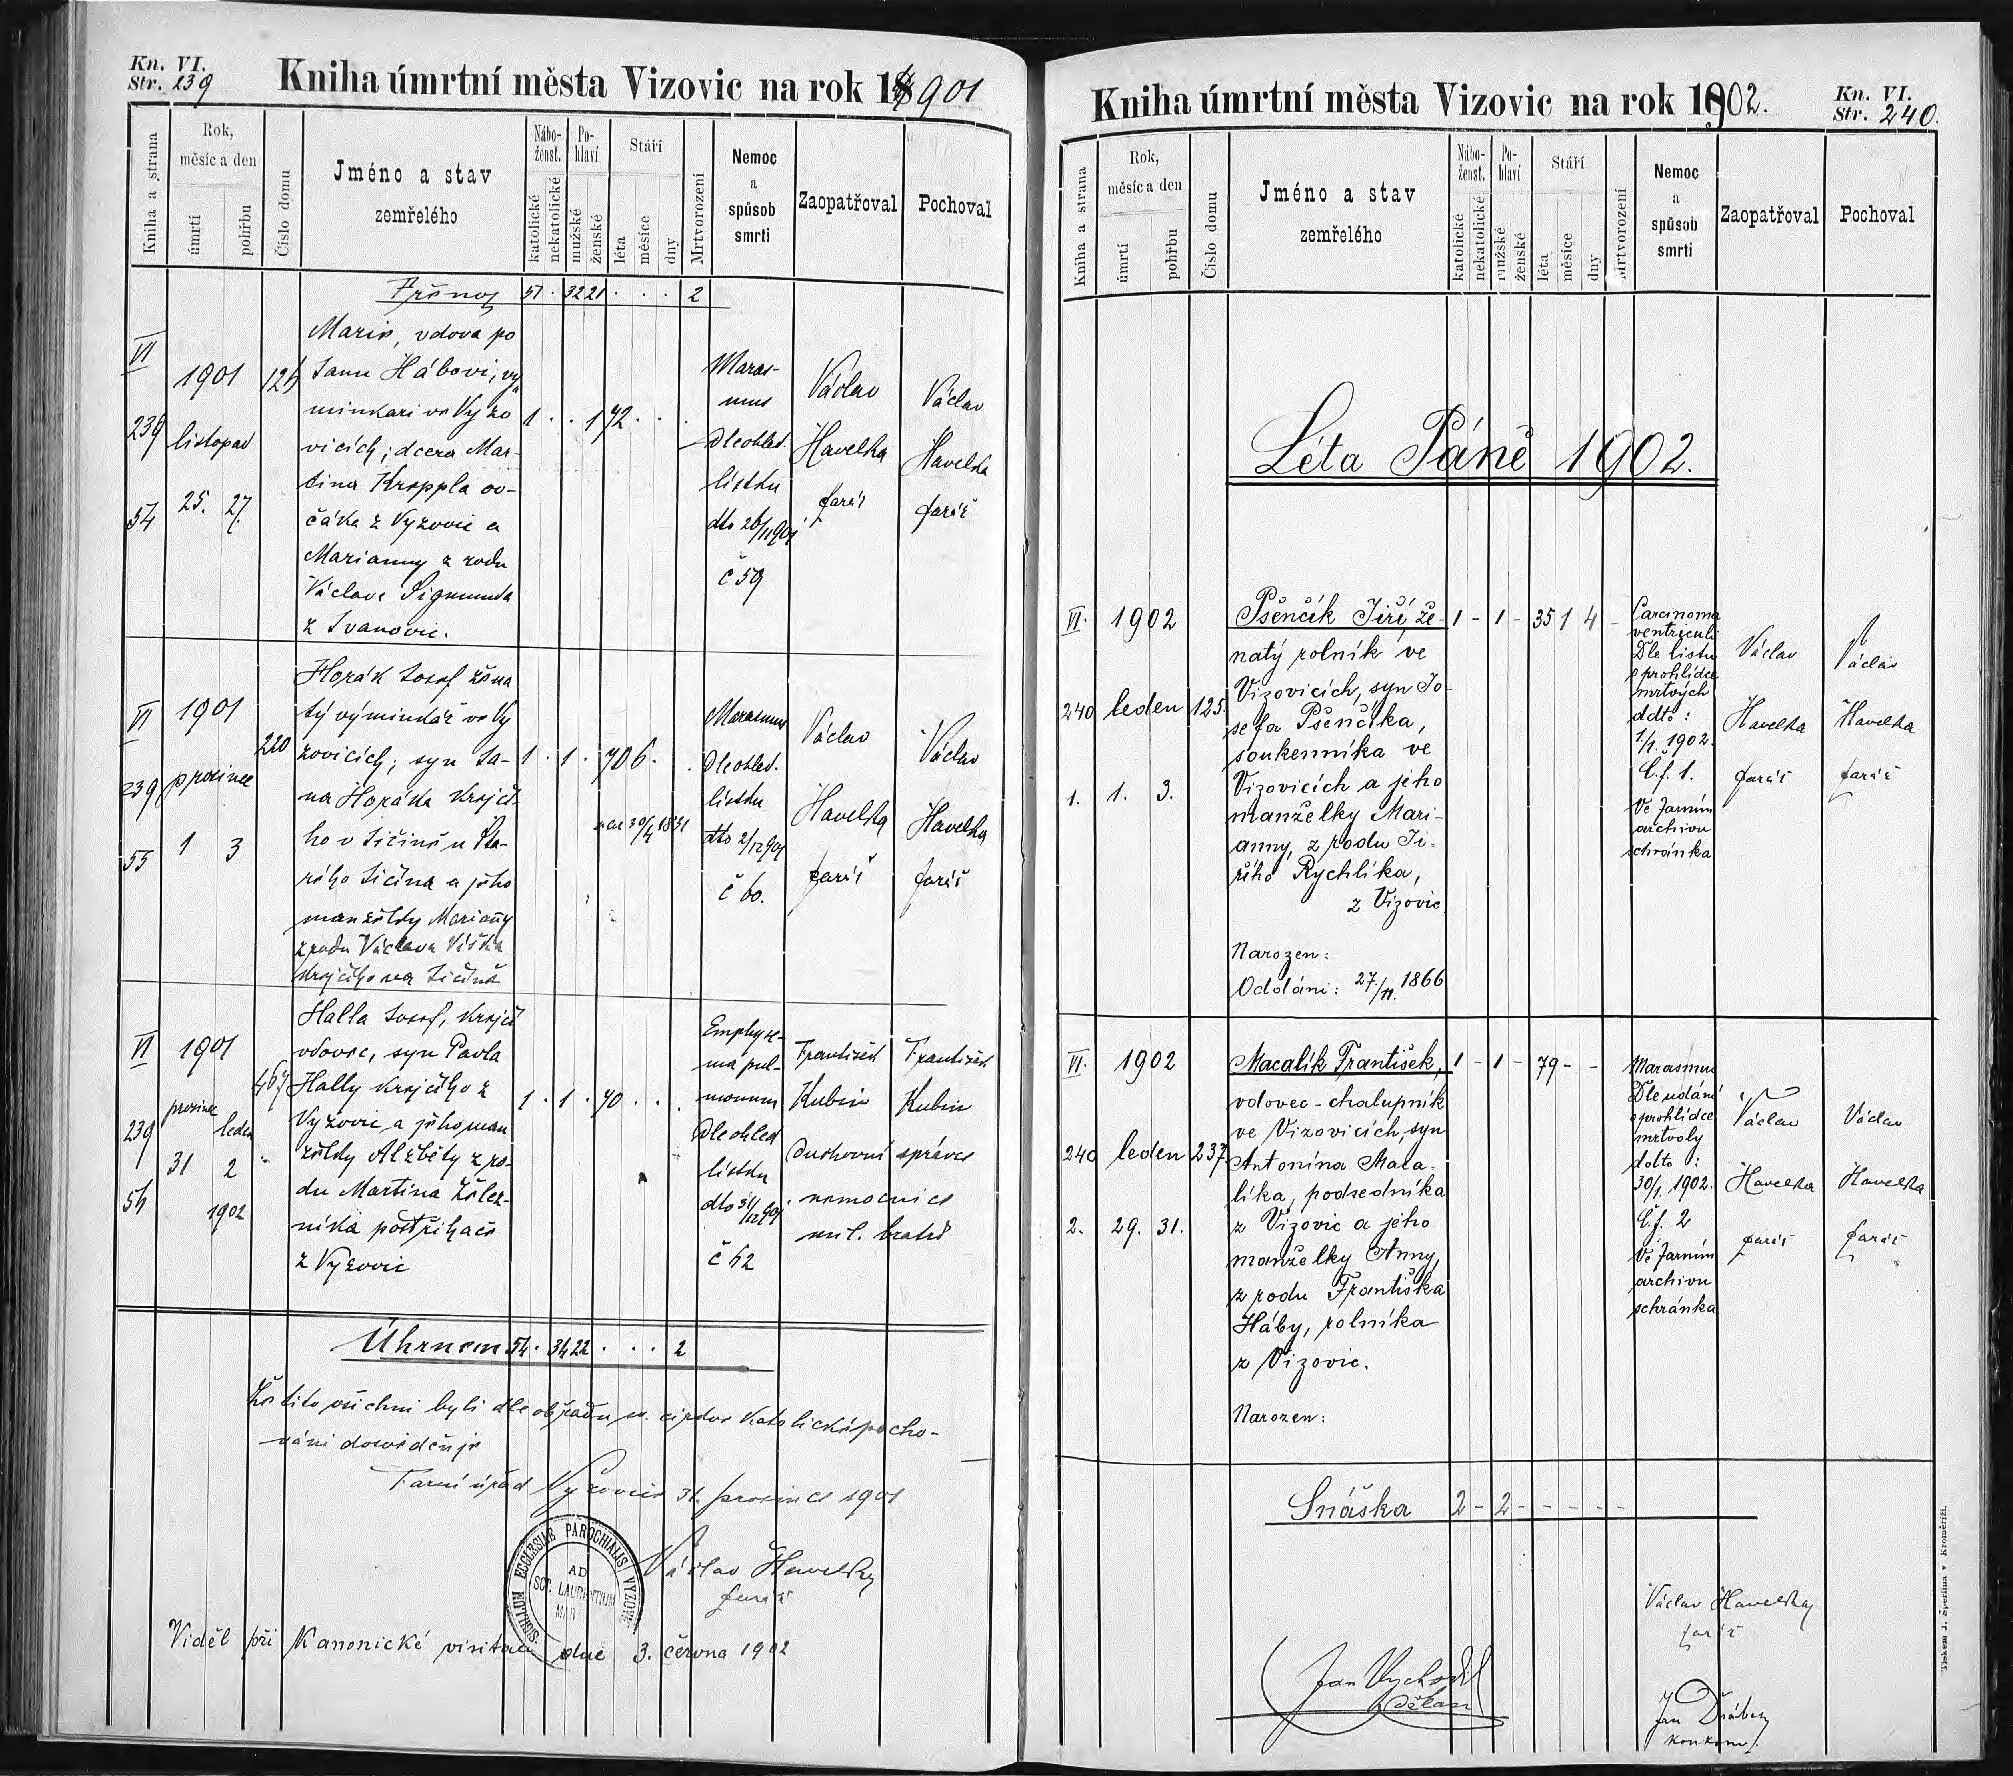 Kn. VI.
Str. 239
Kniha úmrtní města Vizovic na rok 1901
Kniha a strana
Rok,
měsíc a den
úmrtí
pohřbu
Číslo domu
Jméno a stav
zemřelého
Nábo-
ženst.
katolické
nekatolické
Po-
hlaví
mužské
ženské
Stáří
léta
měsíce
dny
Mrtvorození
Nemoc
a
spůsob
smrti
Zaopatřoval
Pochoval
51 . 32 21 . . . 2
VI
239
54
1901
listopad
25. 27.
Marie, vdova po
Janu Hábovi, vý
minkáři ve Vyzo
vicích; dcera Mar-
tina Kroppla ov-
čáka z Vyzovic a
Marianny z rodu
Václava Sigmunda
z Ivanovic.
1 . . 1 72 . . .
Maras-
mus
Dle ohled.
lístku
dto 26/11 901
č 59
Václav
Havelka
farář
Václav
Havelka
farář
VI
239
55
1901
prosinec
1 3
220
Horák Josef žena
tý výminkář ve Vy
zovicích; syn Ja-
na Horáka krejčí
ho v Jičíně u Sta-
rého Jičína a jeho
manželky Marianny
z rodu Václava
krejčího na Jičíně
1 . 1 . 70 6 . .
nar 30/4 1831
Marasmus
Dle ohled.
lístku
dto 2/12 901
č 60.
Václav
Havelka
farář
Václav
Havelka
farář
VI
239
56
1901
prosinec
leden
31 2
1902
467
Halla Josef, krejčí
vdovec, syn Pavla
Hally krejčího z
Vyzovic a jeho man
želky Alžběty z ro-
du Martina Želez-
níka postřihače
z Vyzovic
1 . 1 . 70 . . .
Emphyse-
ma pul-
monum
Dle ohled
lístku
dto 31/12 901
č 62
František
Kubín
František
Kubín
duchovní správce
nemocnice
mil. bratří
Úhrnem 54 . 34 22 . . . 2
Že tito všichni byli dle obřadu sv. církve katolické pocho-
váni dosvědčuje
Farní úřad Vyzovice 31. prosince 1901
Václav Havelka
farář
SIGILLUM ECCLESIAE PAROCHIALIS VYZOVIC
AD
SCT. LAURENTIUM
MAR
Viděl při kanonické visitaci dne 3. června 1902
Kniha úmrtní města Vizovic na rok 1902.
Kn. VI.
Str. 240.
Kniha a strana
Rok,
měsíc a den
úmrtí
pohřbu
Číslo domu
Jméno a stav
zemřelého
Nábo-
ženst.
katolické
nekatolické
Po-
hlaví
mužské
ženské
Stáří
léta
měsíce
dny
Mrtvorození
Nemoc
a
spůsob
smrti
Zaopatřoval
Pochoval
Léta Páně 1902.
VI.
240
1.
1902
leden
1. 3.
125.
Pšenčík Jiří, že-
natý rolník ve
Vizovicích, syn Jo-
sefa Pšenčíka,
soukenníka ve
Vizovicích a jeho
manželky Mari-
anny, z rodu Ji-
řího Rychlíka,
z Vizovic.
Narozen:
Oddáni: 27./11. 1866
1 - 1 - 35 1 4 -
Carcinoma
ventriculi
Dle listu
o prohlídce
mrtvých
ddto:
1/1. 1902.
č.j. 1.
Ve farním
archivu
schránka
Václav
Havelka
farář
Václav
Havelka
farář
VI.
240
2.
1902
leden
29. 31.
237.
Macalík František,
vdovec - chalupník
ve Vizovicích, syn
Antonína Maca-
líka, podsedníka
z Vizovic a jeho
manželky Anny,
z rodu Františka
Háby, rolníka
z Vizovic.
Narozen:
1 - 1 - 79 - -
Marasmus
Dle udání
o prohlídce
mrtvoly
ddto:
30/1. 1902.
č.j. 2
Ve farním
archivu
schránka
Václav
Havelka
farář
Václav
Havelka
farář
Snáška 2 - 2 - - - - -
Václav Havelka
farář
Jan Vychodil
děkan
Tiskem J. Sperlina v Kroměříži.